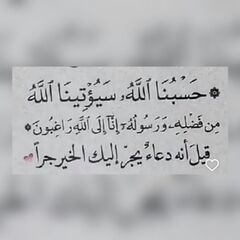 ۞ حَسْبُنَا ٱللَّهُ سَيُؤْتِينَا ٱللَّهُ
مِن فَضْلِهِۦ وَرَسُولُهُۥٓ إِنَّآ إِلَى ٱللَّهِ رَٰغِبُونَ ۞
قيل أنه دعاءٌ يجرّ إليك الخير جراً